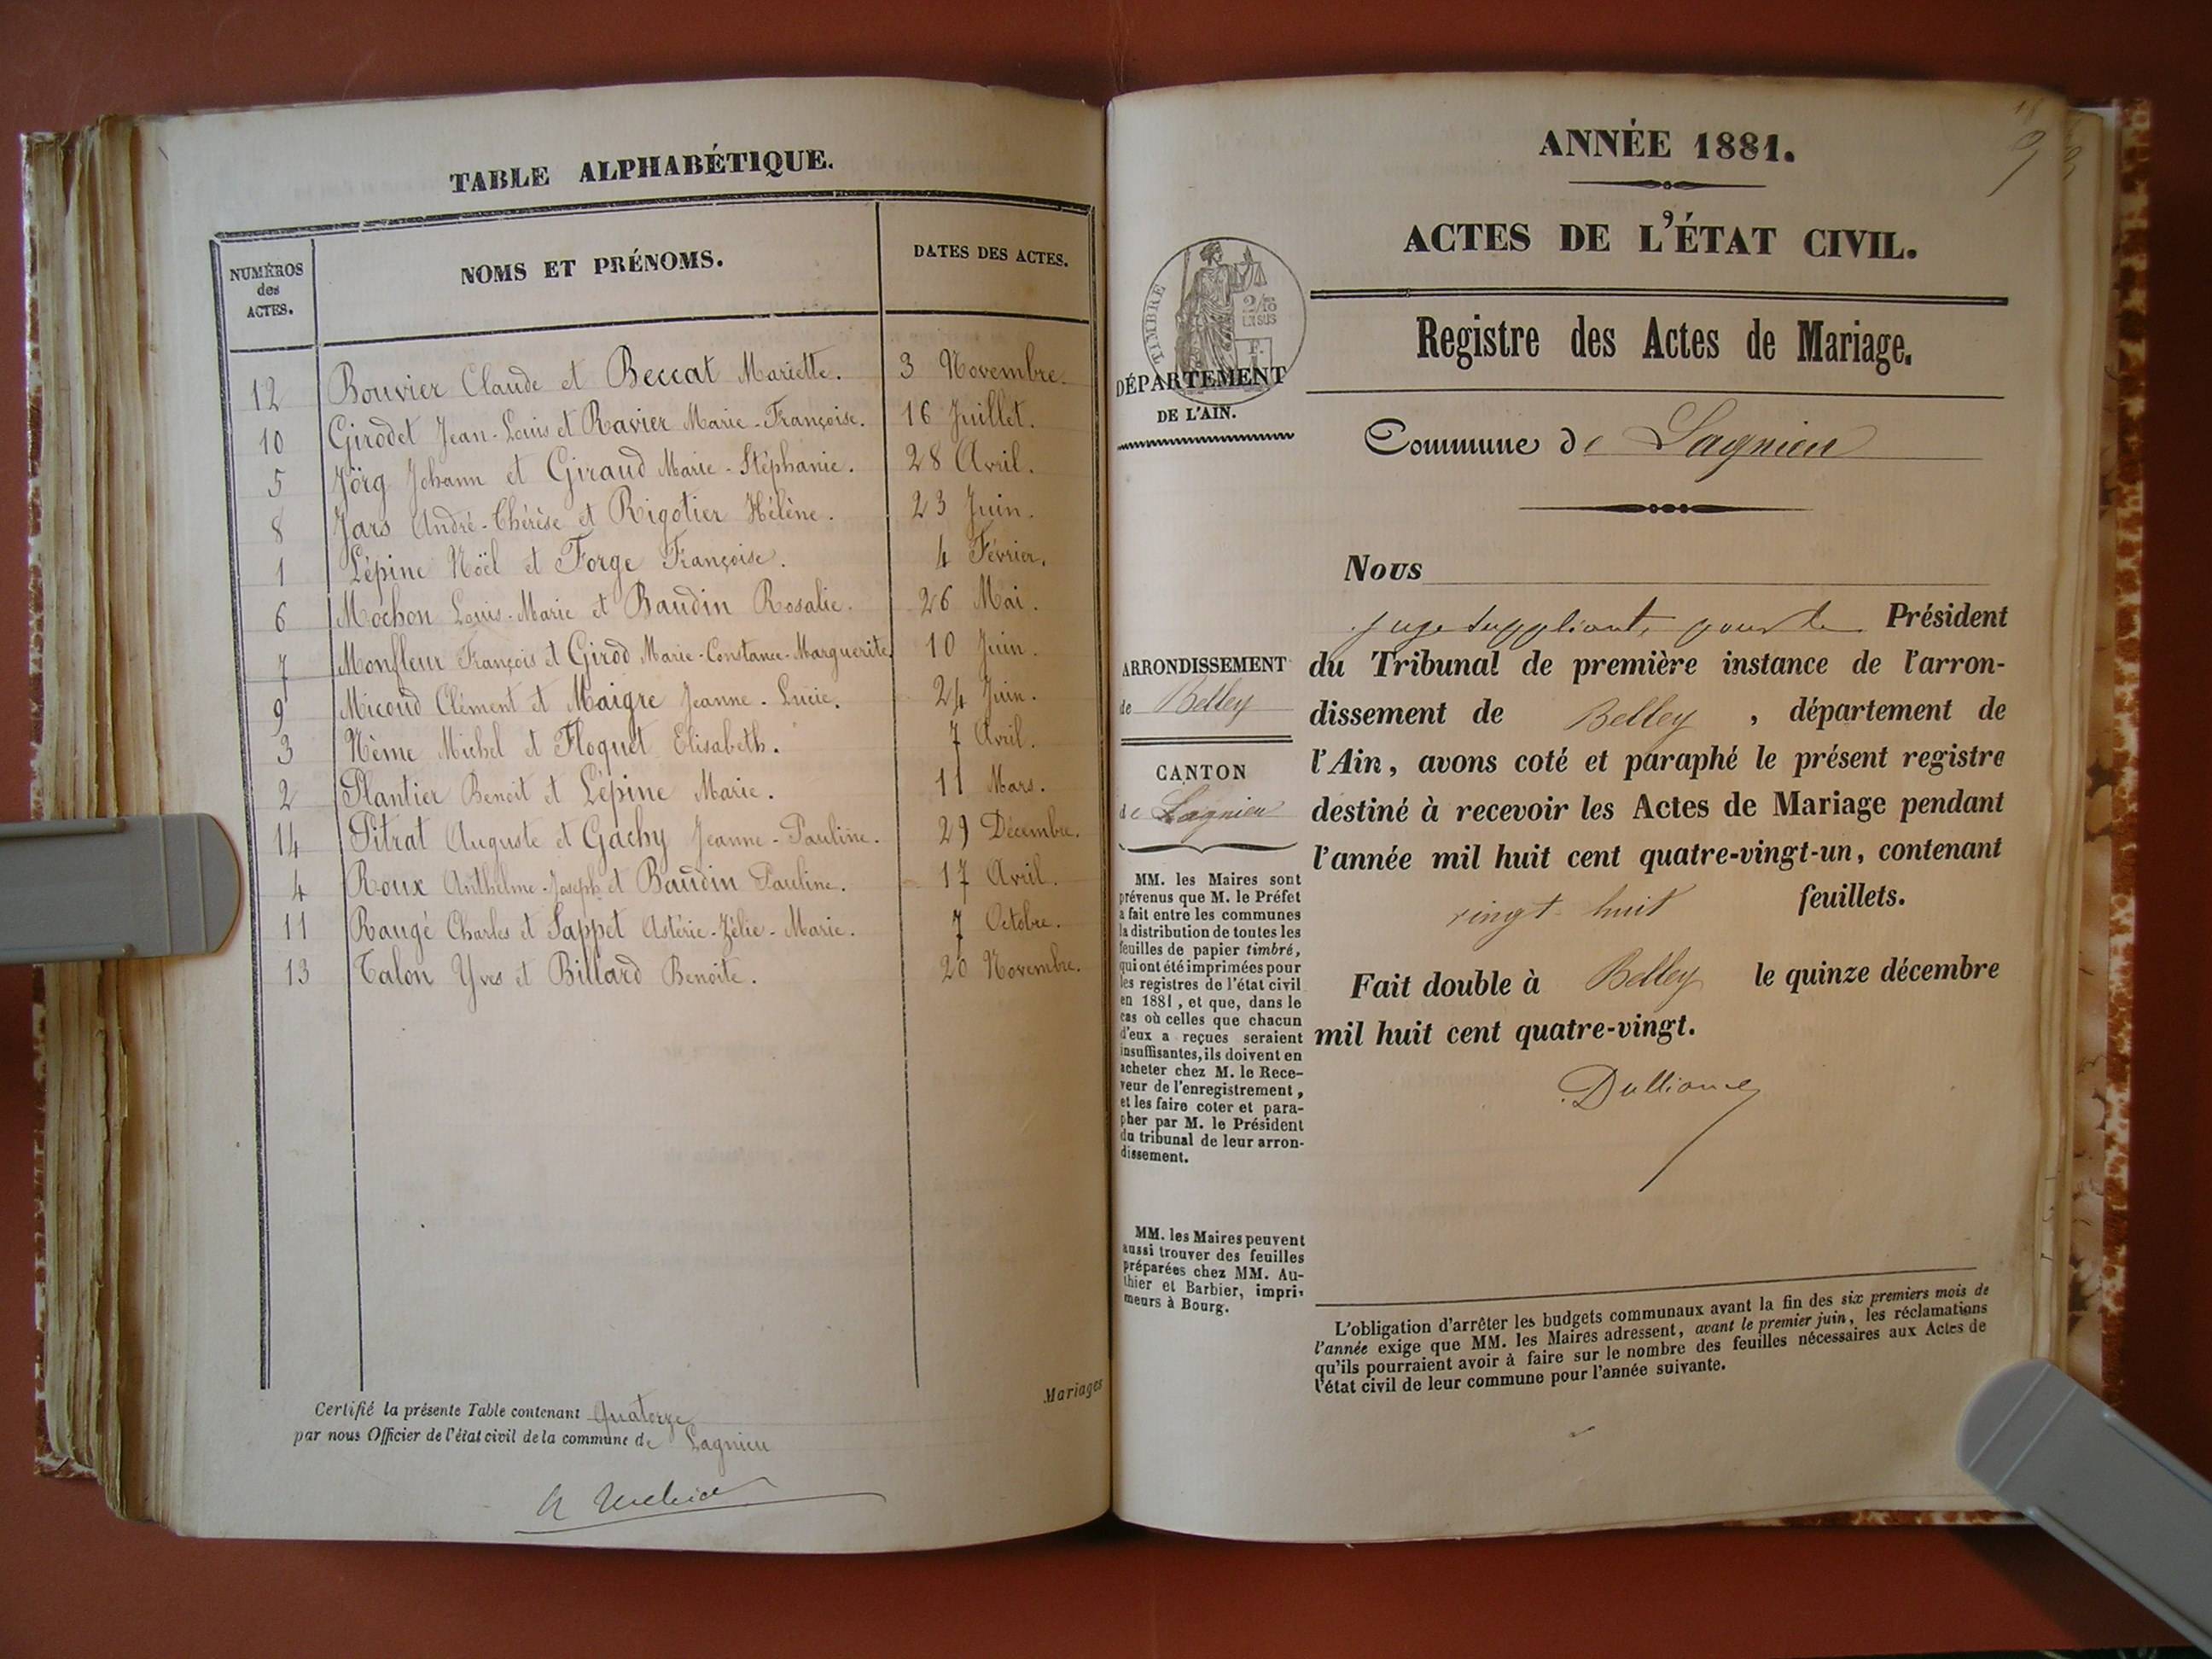 TABLE ALPHABÉTIQUE.
NUMÉROS des ACTES.
NOMS ET PRÉNOMS.
DATES DES ACTES.
12 Bouvier Claude et Beccat Mariette. 3 Novembre.
10 Girodet Jean-Louis et Ravier Marie-Françoise. 16 Juillet.
5 Jörg Johann et Giraud Marie-Stéphanie. 28 Avril.
8 Jars André-Thérèse et Rigotier Hélène. 23 Juin.
1 Lépine Noël et Forge Françoise. 4 Février.
6 Mochon Louis-Marie et Baudin Rosalie. 26 Mai.
7 Monfleur François et Girod Marie-Constance-Marguerite. 10 Juin.
9 Micoud Clément et Maigre Jeanne-Lucie. 24 Juin.
3 Nème Michel et Floquet Elisabeth. 7 Avril.
2 Plantier Benoit et Lépine Marie. 11 Mars.
14 Pitrat Auguste et Gachy Jeanne-Pauline. 29 Décembre.
4 Roux Anthelme-Joseph et Baudin Pauline. 17 Avril.
11 Raugé Charles et Sappet Astérie-Zélie-Marie. 7 Octobre.
13 Talon Yves et Billard Benoite. 20 Novembre.
Mariages
Certifié la présente Table contenant Quatorze
par nous Officier de l'état civil de la commune de Lagnieu
ANNÉE 1881.
ACTES DE L'ÉTAT CIVIL.
TIMBRE
2/10
EN SUS
Registre des Actes de Mariage.
DÉPARTEMENT
DE L'AIN.
Commune de Lagnieu
Nous
juge suppléant, pour le Président
du Tribunal de première instance de l'arron-
dissement de Belley, département de
l'Ain, avons coté et paraphé le présent registre
destiné à recevoir les Actes de Mariage pendant
l'année mil huit cent quatre-vingt-un, contenant
vingt huit feuillets.
Fait double à Belley le quinze décembre
mil huit cent quatre-vingt.
ARRONDISSEMENT
de Belley
CANTON
de Lagnieu
MM. les Maires sont
prévenus que M. le Préfet
a fait entre les communes
la distribution de toutes les
feuilles de papier timbré,
qui ont été imprimées pour
les registres de l'état civil
en 1881, et que, dans le
cas où celles que chacun
d'eux a reçues seraient
insuffisantes, ils doivent en
acheter chez M. le Rece-
veur de l'enregistrement,
et les faire coter et para-
pher par M. le Président
du tribunal de leur arron-
dissement.
MM. les Maires peuvent
aussi trouver des feuilles
préparées chez MM. Au-
thier et Barbier, impri-
meurs à Bourg.
L'obligation d'arrêter les budgets communaux avant la fin des six premiers mois de
l'année exige que MM. les Maires adressent, avant le premier juin, les réclamations
qu'ils pourraient avoir à faire sur le nombre des feuilles nécessaires aux Actes de
l'état civil de leur commune pour l'année suivante.